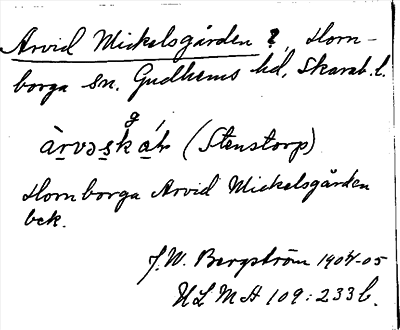 Arvid Mickelsgården ?, Horn-
borga sn. Gudhems hd, Skarab. l.
g
(Stenstorp)
Hornborga Arvid Mickelsgården
bek.
J. W. Bergström 1904-05
ULMA 109:233 b.